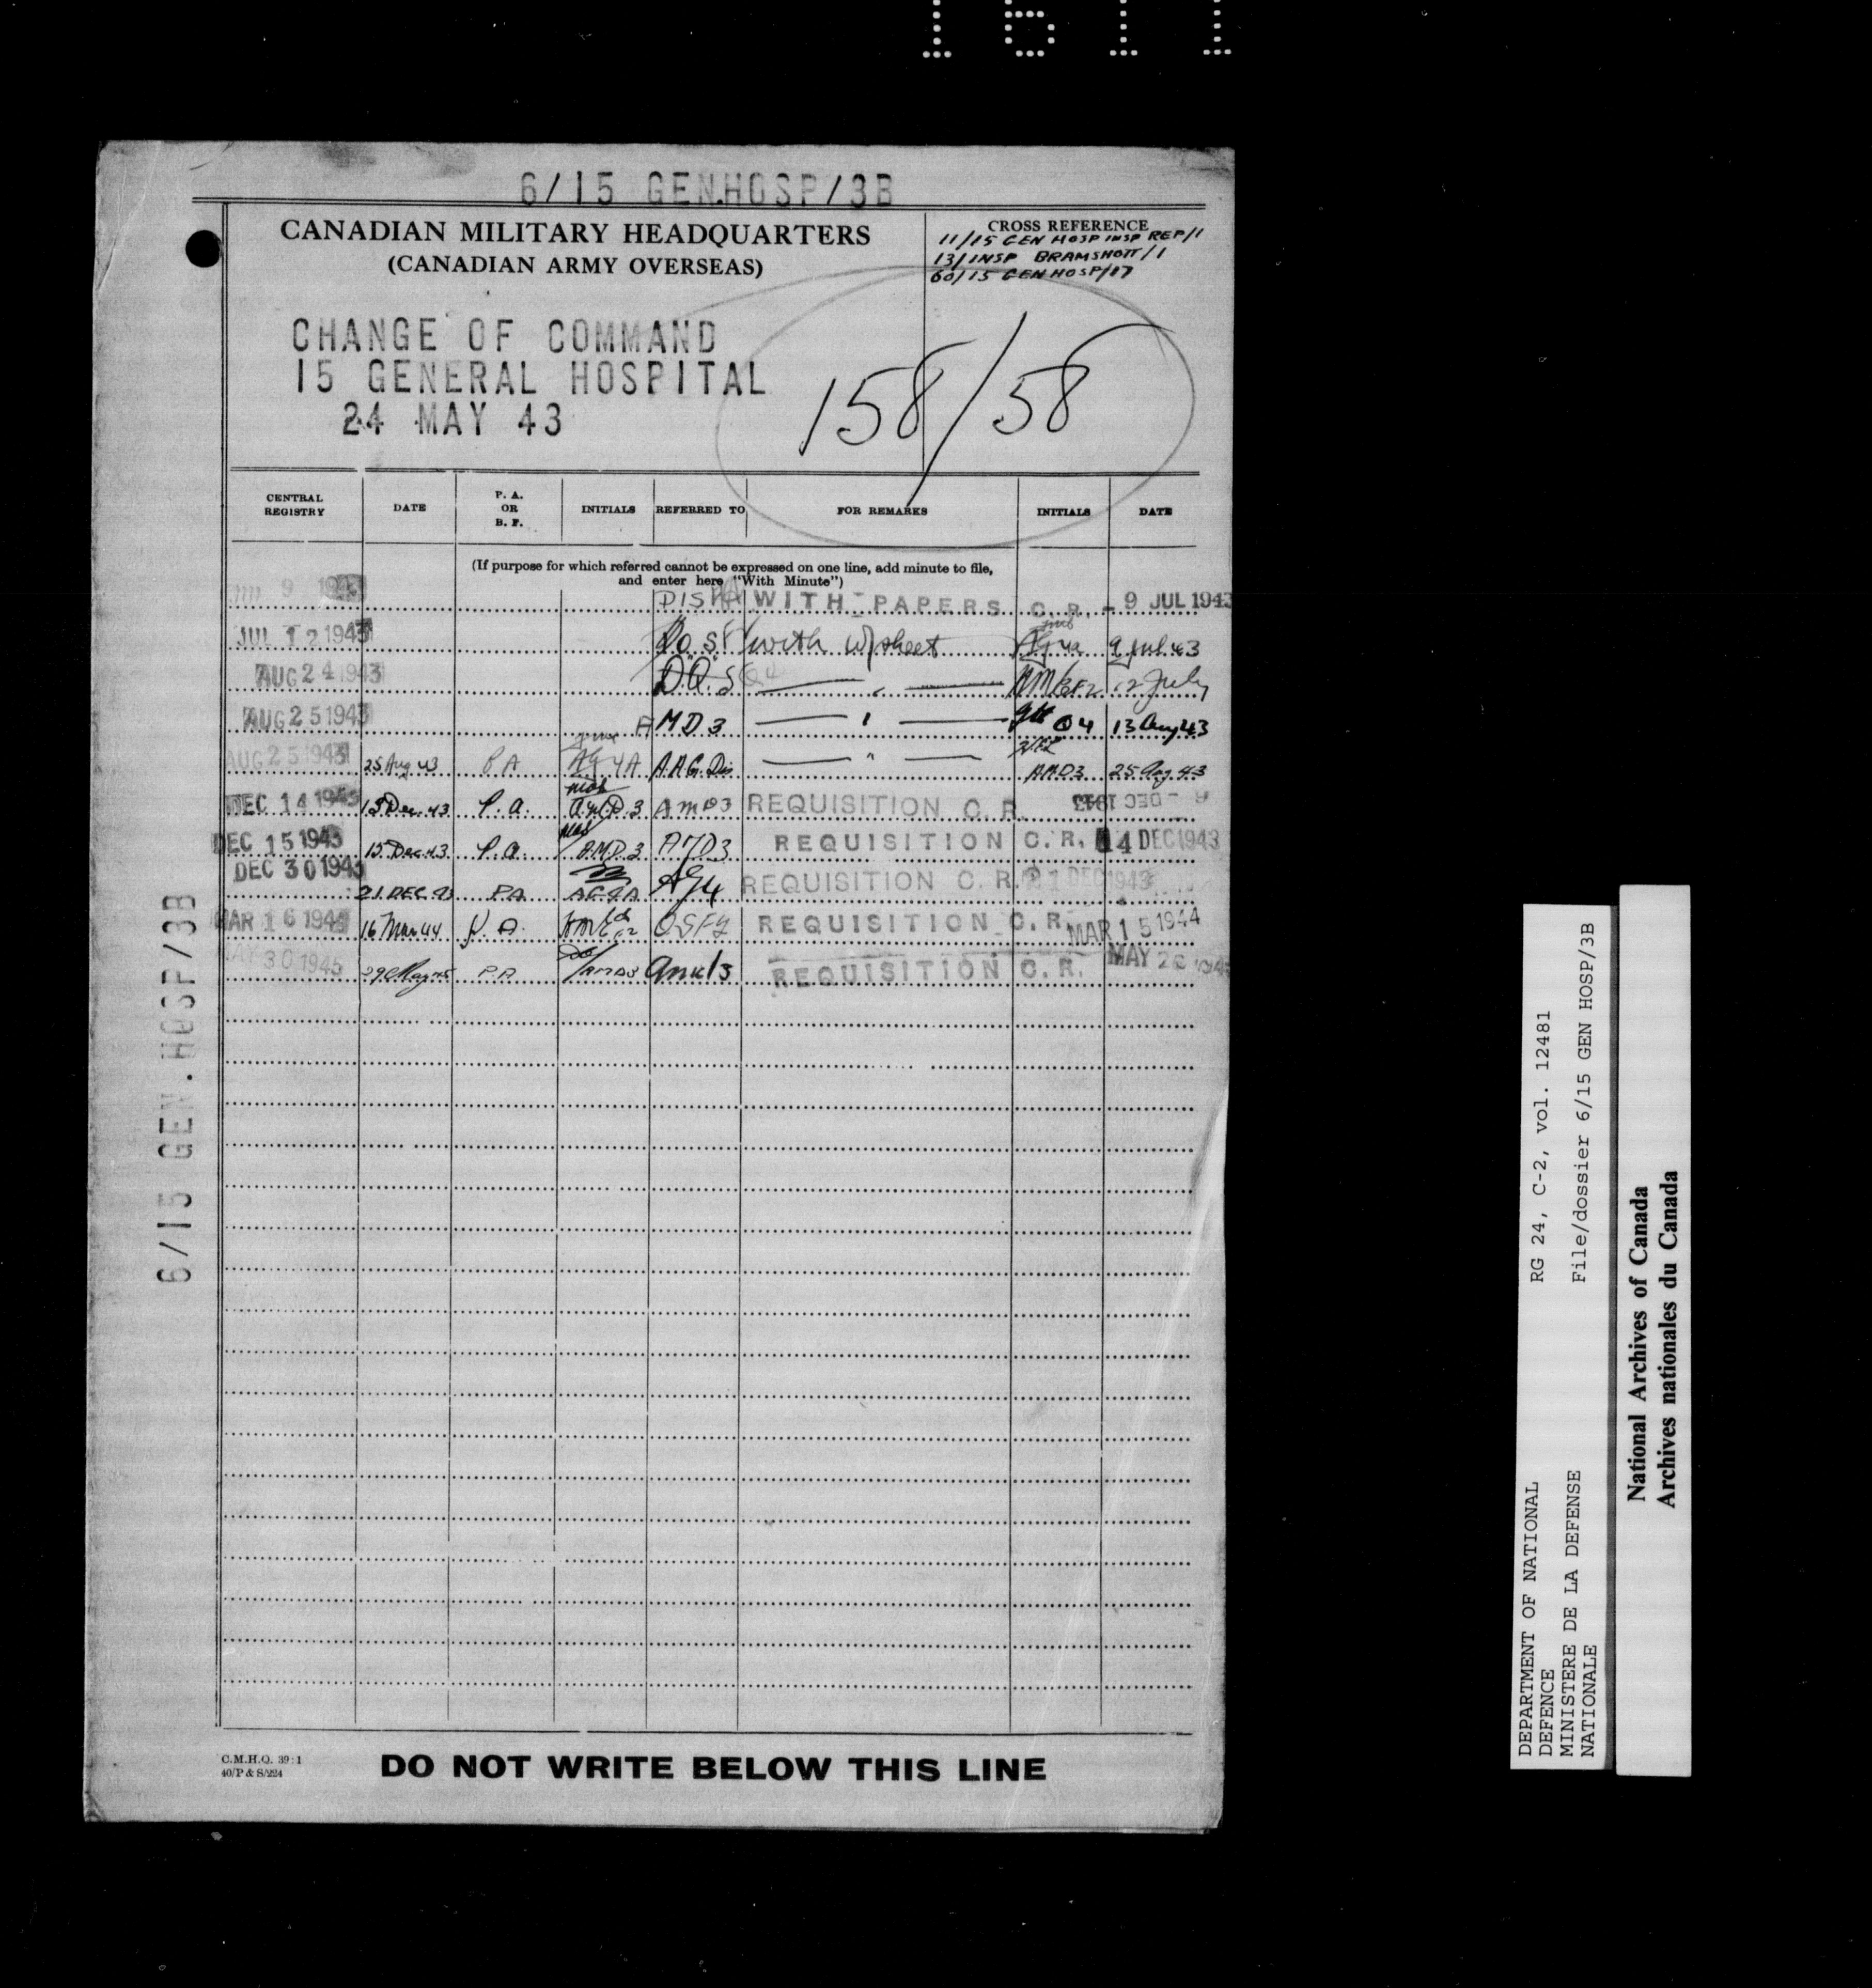 1611
6/15 GEN.HOSP/3B
CANADIAN MILITARY HEADQUARTERS
(CANADIAN ARMY OVERSEAS)
CROSS REFERENCE
11/15 GEN HOSP INSP REP/1
13/INSP BRAMSHOTT/1
60/15 GEN HOSP/17
CHANGE OF COMMAND
15 GENERAL HOSPITAL
24 MAY 43
158/58
CENTRAL REGISTRY DATE P. A. OR B. F. INITIALS REFERRED TO FOR REMARKS INITIALS DATE
(If purpose for which referred cannot be expressed on one line, add minute to file,
and enter here "With Minute")
9 1943 WITH PAPERS C. R. - 9 JUL 1943
JUL 12 1943 with w/sheet 9 Jul 43
AUG 24 1943 12 July
AUG 25 1943 AMD3 " 13 Aug 43
AUG 25 1943 25 Aug 43 PA AG 4A A.A.G. Dis " AMD3 25 Aug 43
DEC 14 1943 13 Dec. 43 P.A. A.M.D.3 AMD3 REQUISITION C. R. - DEC 1943
DEC 15 1943 15 Dec. 43 P.A. A.M.D.3 REQUISITION C. R. 14 DEC 1943
DEC 30 1943 21 DEC 43 PA AG4A AG4 REQUISITION C. R. 21 DEC 1943
MAR 16 1944 16 Mar 44 P.A. REQUISITION C. R. MAR 15 1944
MAY 30 1945 29 May 45 P.A. AMD3 REQUISITION C. R. MAY
6/15 GEN.HOSP/3B
C.M.H.Q. 39:1
40/P & S/224
DO NOT WRITE BELOW THIS LINE
DEPARTMENT OF NATIONAL
DEFENCE
MINISTERE DE LA DEFENSE
NATIONALE
RG 24, C-2, vol. 12481
File/dossier 6/15 GEN HOSP/3B
National Archives of Canada
Archives nationales du Canada